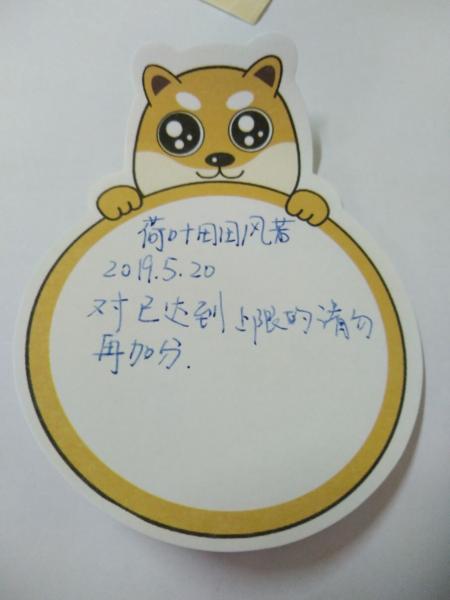 荷叶田田风若
2019.5.20
对已达到上限的请勿
再加分.